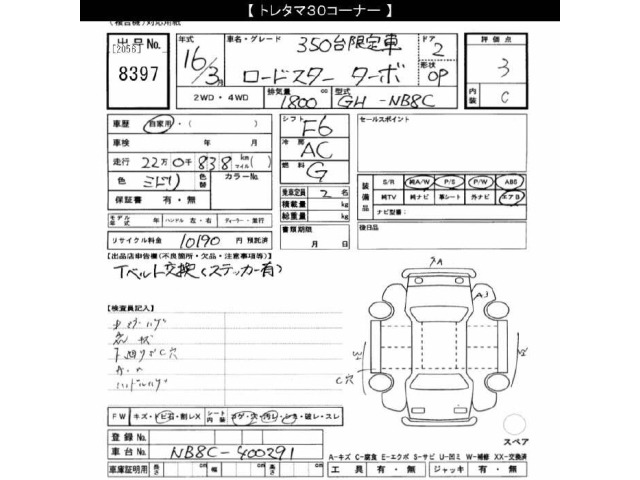 【 トレタマ30コーナー 】
(複合機)対応用紙
出品No.
[2056]
8397
年式
16/3月
車名・グレード
350台限定車
ロードスター ターボ
ドア
2
形状
OP
評価点
3
内装
C
2WD・4WD
排気量
1800
cc
型式
GH-NB8C
車歴 自家用・( )
車検 年 月
走行 22万0千838 km マイル ( )
色 ミドリ 色替 カラーNo.
保証書 有・無
モデル年式 年 ハンドル 左・右 ディーラー・並行
リサイクル料金 10190 円 預託済
シフト
F6
冷房
AC
燃料
G
乗車定員 2 名
積載量 kg
総重量 kg
書類期限
月 日
セールスポイント
装備品
S/R 純A/W P/S P/W ABS
純TV 純ナビ 革シート 外ナビ エアB
ナビ型番:
後日品
【出品店申告欄(不良箇所・欠品・注意事項等)】
Tベルト交換(ステッカー有)
【検査員記入】
下廻りサビC穴
ハンドルハゲ
FW キズ・トビ石・割レX シート内装 コゲ・穴・汚レ・シミ・破レ・スレ
登録No.
車台No. NB8C-400291
車庫証明用 長さ cm 幅 cm 高さ cm
A
A3
C穴
スペア
A-キズ C-腐食 E-エクボ S-サビ U-凹ミ W-補修 XX-交換済
工具 有・無 ジャッキ 有・無